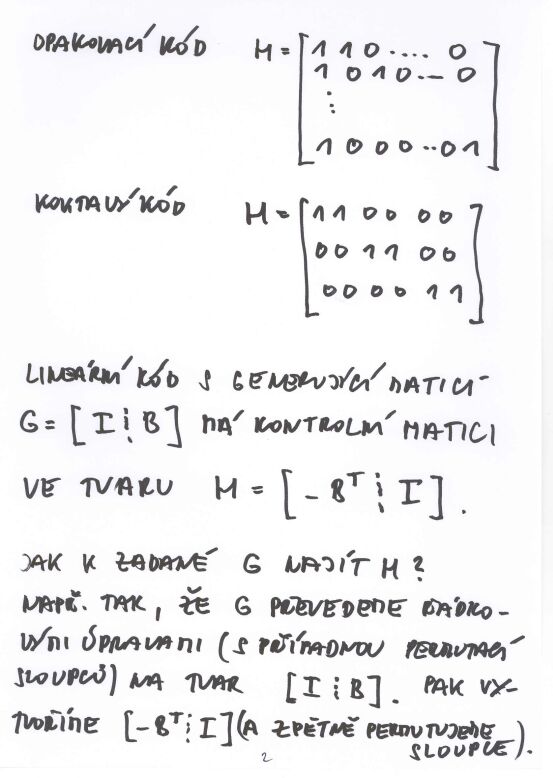 OPAKOVACÍ KÓD H = [ 1 1 0 .... 0
1 0 1 0 ... 0
⋮
1 0 0 0 .. 0 1 ]
KOKTAVÝ KÓD H = [ 1 1 0 0 0 0
0 0 1 1 0 0
0 0 0 0 1 1 ]
LINEÁRNÍ KÓD S GENERUJÍCÍ MATICÍ
G = [ I ⋮ B ] MÁ KONTROLNÍ MATICI
VE TVARU H = [ -Bᵀ ⋮ I ] .
JAK K ZADANÉ G NAJÍT H ?
NAPŘ. TAK, ŽE G PŘEVEDEME ŘÁDKO-
VÝMI ÚPRAVAMI (S PŘÍPADNOU PERMUTACÍ
SLOUPCŮ) NA TVAR [ I ⋮ B ] . PAK VY-
TVOŘÍME [ -Bᵀ ⋮ I ] (A ZPĚTNĚ PERMUTUJEME
SLOUPCE).
2